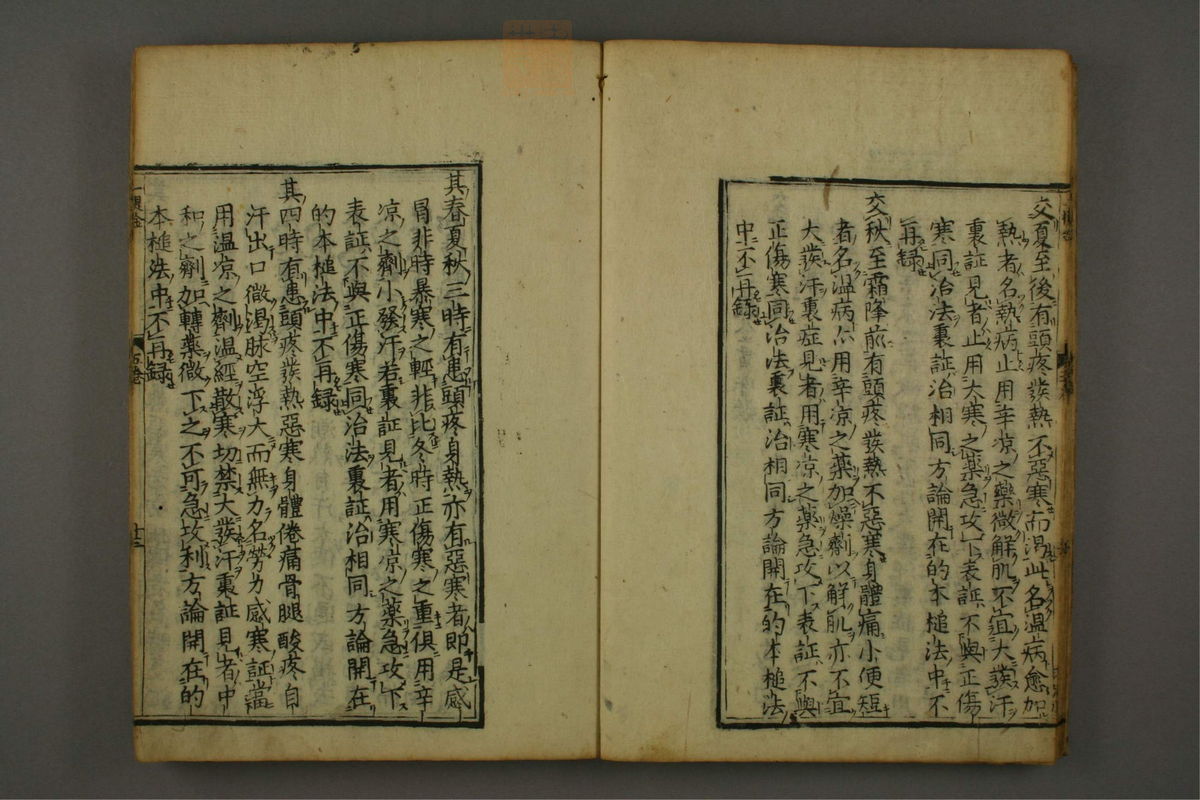 交夏至後有頭疼發熱不惡寒而渇此名温病愈加
熱者名熱病止用辛凉之藥微解肌不宜大發汗
裏証見者止用大寒之薬急攻下表証不與正傷
寒同治法裏証治相同方論開在的本槌法中不
再録
交秋至霜降前有頭疼發熱不惡寒身體痛小便短
者名温病亦用辛凉之薬加燥劑以解肌亦不宜
大發汗裏症見者用寒凉之薬急攻下表証不與
正傷寒同治法裏証治相同方論開在的本槌法
中不再録
其春夏秋三時有患頭疼身熱亦有惡寒者即是感
冒非時暴寒之輕非比冬時正傷寒之重俱用辛
凉之劑小發汗若裏証見者用寒凉之薬急攻下
表証不與正傷寒同治法裏証治相同方論開在
的本槌法中不再録
其四時有患頭疼發熱惡寒身體倦痛骨腿酸疼自
汗出口微渇脉空浮大而無力名勞力感寒証當
用温凉之劑温經散寒切禁大發汗裏証見者中
和之劑如轉薬微下之不可急攻利方論開在的
本槌法中不再録